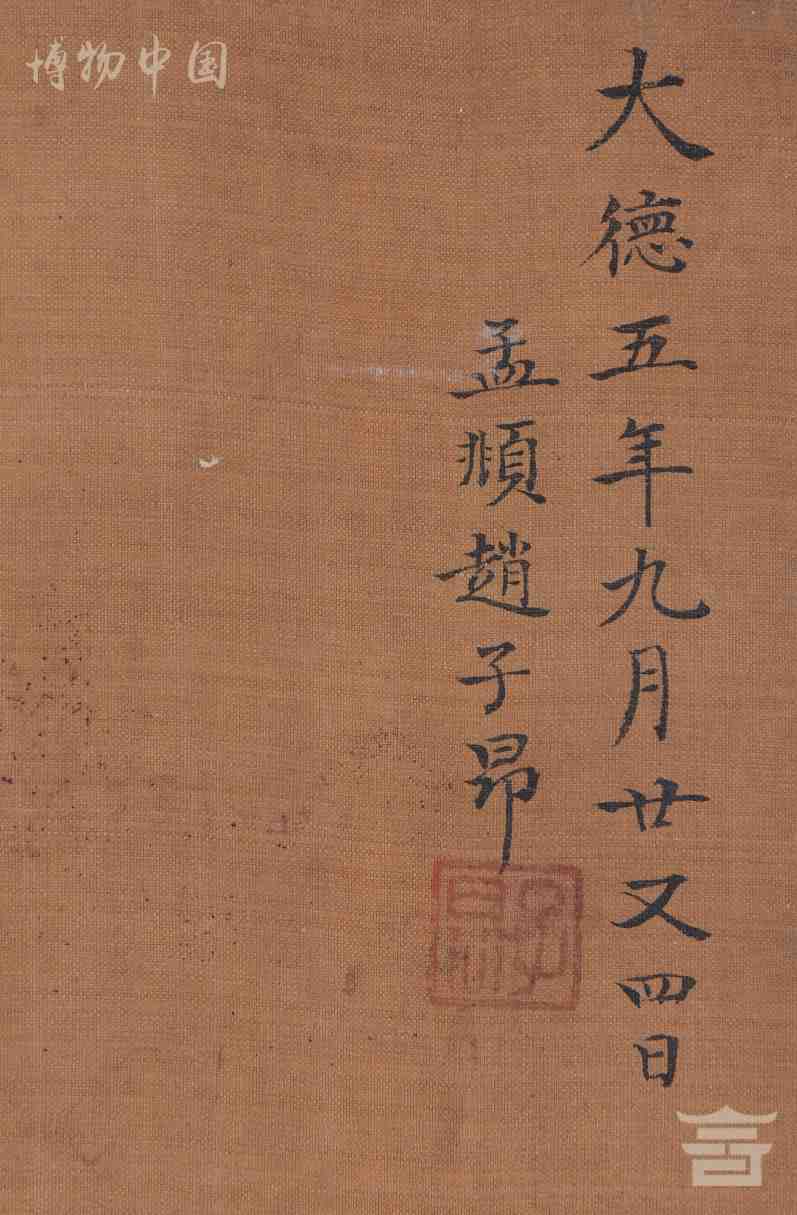 博物中国
大德五年九月廿又四日
孟頫趙子昂
子昂